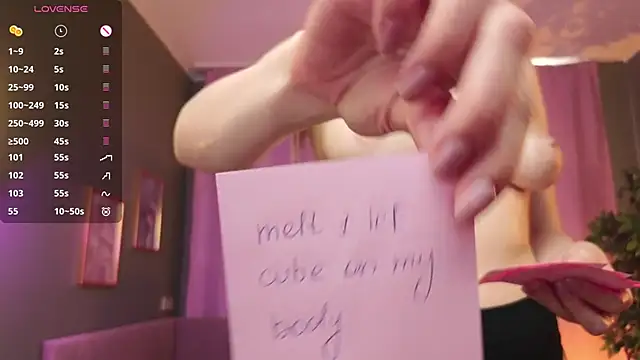 LOVENSE
1~9 2s
10~24 5s
25~99 10s
100~249 15s
250~499 30s
≥500 45s
101 55s
102 55s
103 55s
55 10~50s
melt 1
cube on my
body